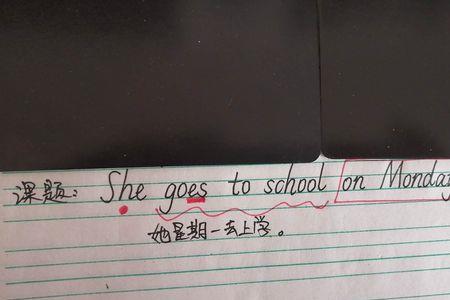 课题：She goes to school on Monday
她星期一去上学。